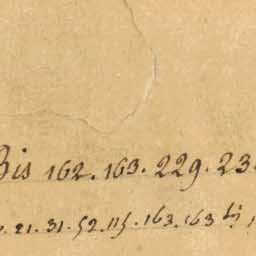 Bis 162. 163. 229. 23
21. 31. 52. 115. 163. 163 bis